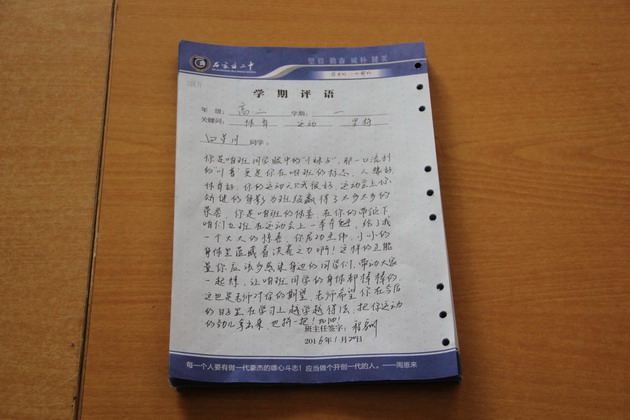 石家庄二中
学期评语
年级：高二 学期：一
关键词：体育 运动
同学：
你是咱班同学眼中的"小妹子"，那一口流利
的"川普"更是你在咱班的标志，人缘好，
体育好，你的运动天赋很好，运动会上你
矫健的身影为班级赢得了大多大多的
荣誉，你是咱班的体委，在你的带领下
咱们女班在运动会上一举夺魁，给了我
一个大大的惊喜，你居功至伟，小小的
身体里蕴藏着洪荒之力啊！这样的正能
量你应该多感染身边的同学们，带动大家
一起，让咱班同学的身体都棒棒的，
这也是老师对你的期望，老师希望你在今后
的日子里在学习上越学越得法，把你运动
的劲儿拿出来，也拼一把！加油！
班主任签字：
2016年1月20日
每一个人要有做一代豪杰的雄心斗志！应当做个开创一代的人。——周恩来